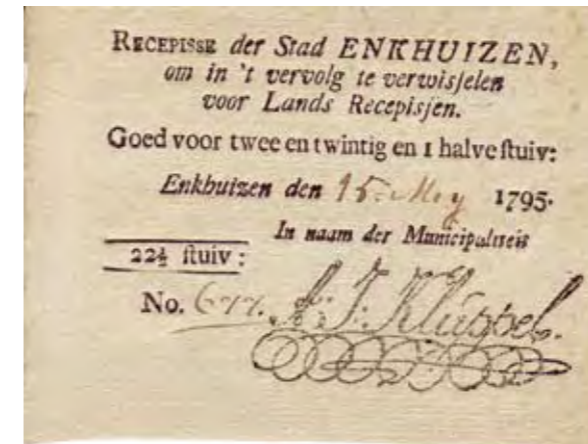 RECEPISSE der Stad ENKHUIZEN,
om in 't vervolg te verwisselen
voor Lands Recepissen.
Goed voor twee en twintig en 1 halve stuiv:
Enkhuizen den 15. Mey 1795.
In naam der Municipaliteit
22½ stuiv :
No. 677. A: J: Kluppel.